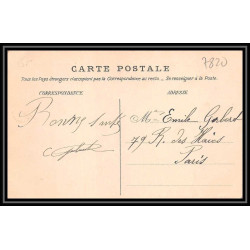 7820
CARTE POSTALE
Tous les Pays étrangers n'acceptent pas la Correspondance au recto. — Se renseigner à la Poste.
CORRESPONDANCE
ADRESSE
Bonne santé
Mme Emile Gerbert
79 R. des Haies
Paris